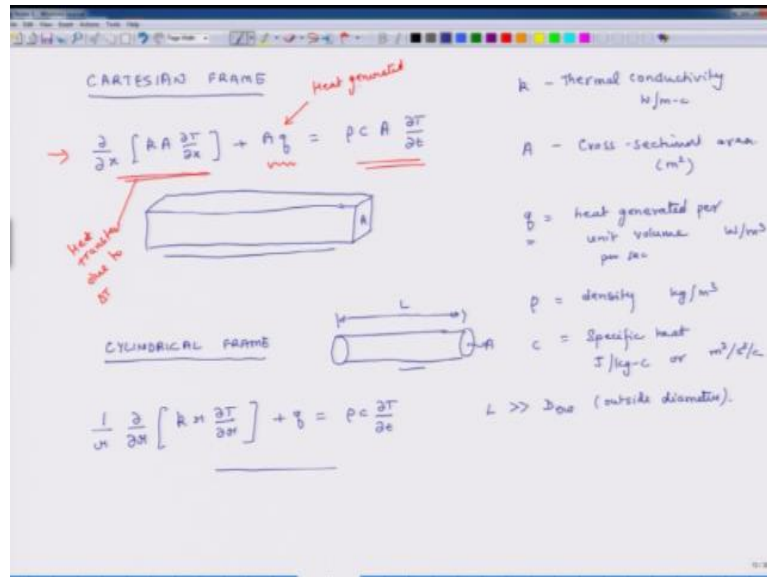 CARTESIAN FRAME
Heat generated
→ ∂/∂x [ k A ∂T/∂x ] + A q = ρ c A ∂T/∂t
Heat
transfer
due to
ΔT
A
CYLINDRICAL FRAME
L
A
1/r ∂/∂r [ k r ∂T/∂r ] + q = ρ c ∂T/∂t
k - Thermal conductivity
W/m-c
A - Cross-sectional area
(m²)
q = heat generated per
unit volume W/m³
per sec
ρ = density kg/m³
c = Specific heat
J/kg-c or m²/s²/c
L >> (outside diameter).